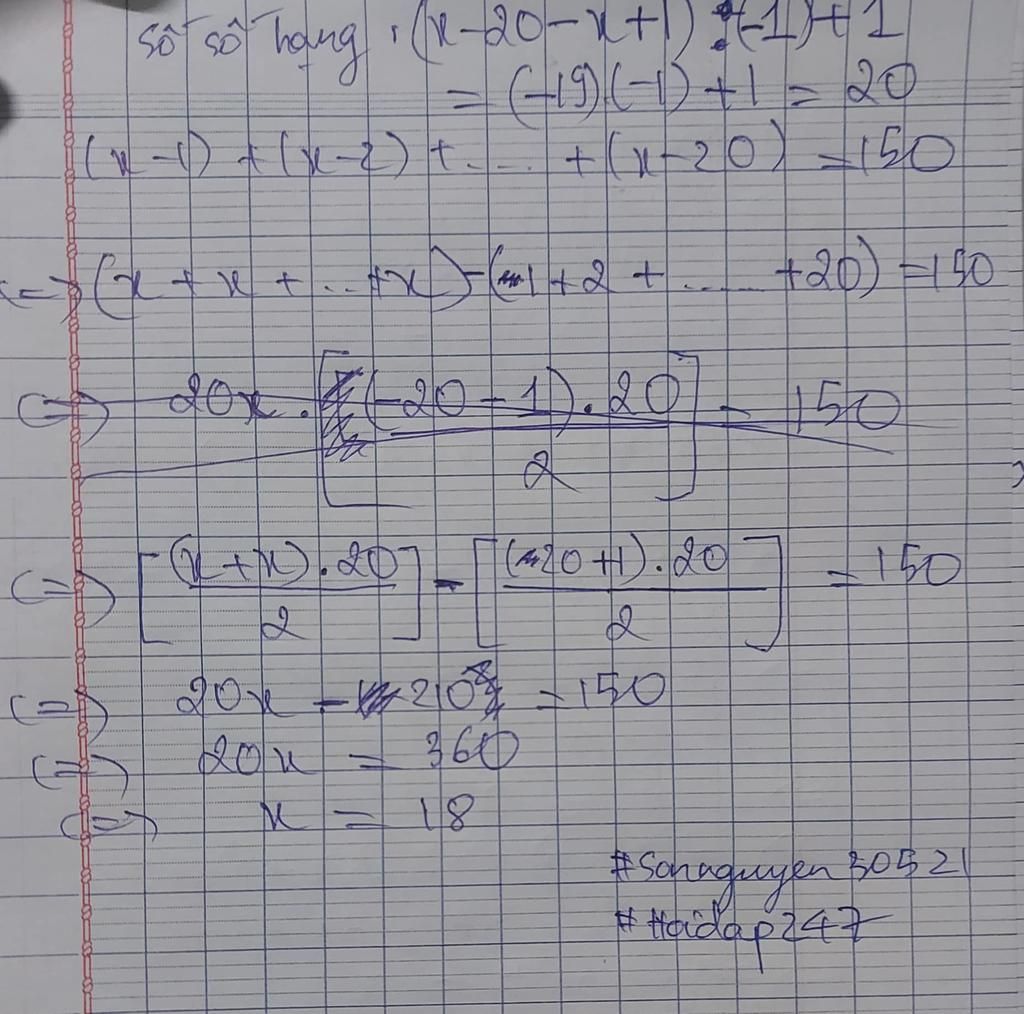 Số số hạng : (x-20-x+1) : (-1)+1
= (-19)(-1)+1 = 20
(x-1)+(x-2)+.... +(x-20) =150
<=> (x+x+...+x)-(1+2+.....+20)=150
<=> 20x. [(-20-1).20/2] = 150
<=> [(x+x).20/2] - [(20+1).20/2] = 150
<=> 20x - 210 = 150
<=> 20x = 360
<=> x = 18
#Sonnguyen30521
#Hoidap247